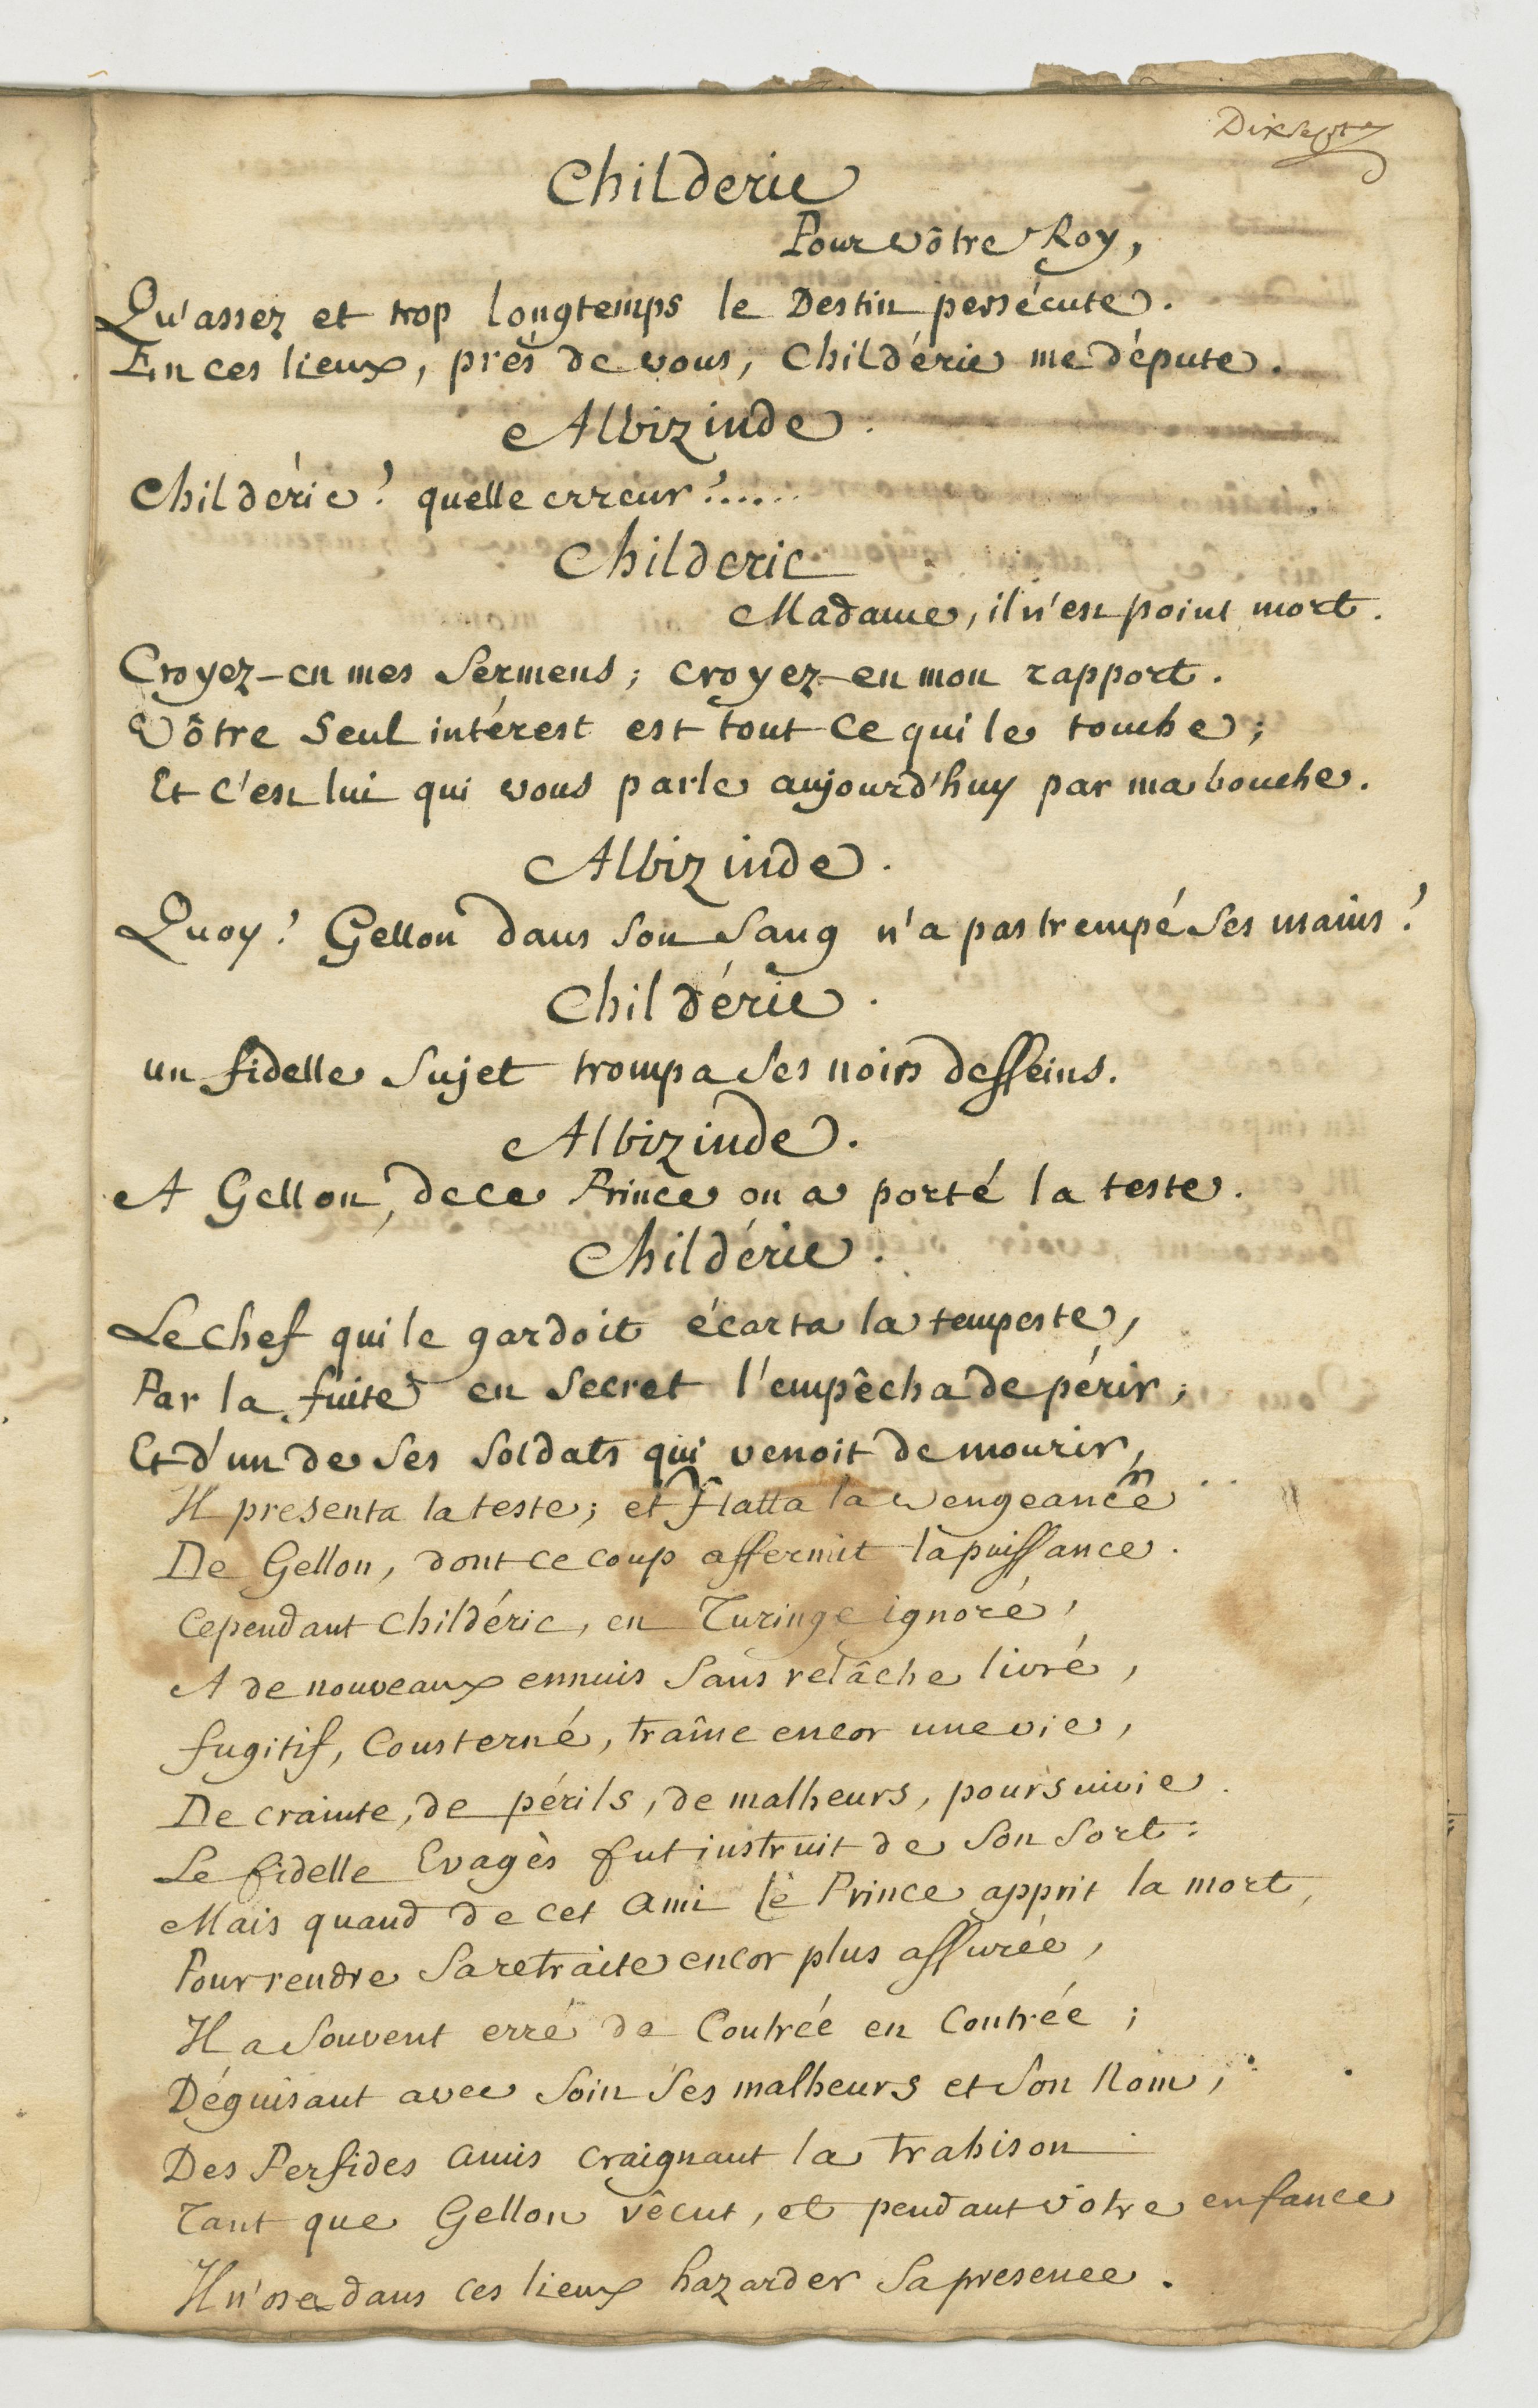 Dixsept
Childeric
Pour vôtre Roy,
Qu'assez et trop longtemps le Destin persécute.
En ces lieux, près de vous, Childéric me députe.
Albizinde.
Childéric? quelle erreur?......
Childeric
Madame, il n'est point mort.
Croyez-en mes Sermens; croyez-en mon rapport.
Vôtre Seul intérest est tout ce qui le touche;
Et c'est lui qui vous parle aujourd'huy par ma bouche.
Albizinde.
Quoy? Gellon dans Son Sang n'a pas trempé Ses mains?
Childéric.
un fidelle Sujet trompa Ses noirs desseins.
Albizinde.
A Gellon, de ce Prince on a porté la teste.
Childéric.
Le chef qui le gardoit écarta la tempeste,
Par la fuite en Secret l'empêcha de périr;
Et d'un de Ses Soldats qui venoit de mourir,
Il presenta la teste; et flatta la vengeance
De Gellon, dont ce coup affermit la puissance.
Cependant Childéric, en Turinge ignoré,
A de nouveaux ennuis Sans relâche livré,
fugitif, Consterné, traîne encor une vie,
De crainte, de périls, de malheurs, poursuivie.
Le fidelle Evagès fut instruit de Son Sort:
Mais quand de cet Ami le Prince apprit la mort,
Pour rendre Sa retraite encor plus assurée,
Il a Souvent erré de Contrée en Contrée;
Déguisant avec Soin Ses malheurs et Son Nom;
Des Perfides Amis craignant la trahison
Tant que Gellon vêcut, et pendant votre enfance
Il n'osa dans ces lieux hazarder Sa presence.